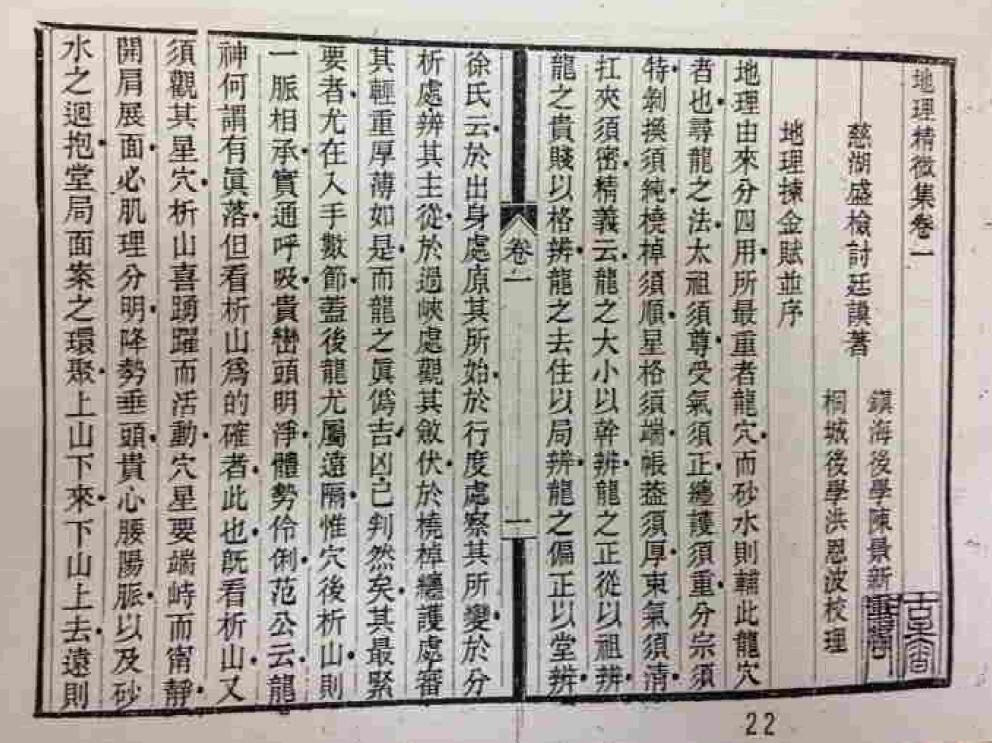 地理精微集卷一
慈湖盛檢討廷謨著
鎮海後學陳景新
桐城後學洪恩波校理
地理揀金賦並序
地理由來分四用所最重者龍穴而砂水則輔此龍穴
者也尋龍之法太祖須尊受氣須正纏護須重分宗須
特剝換須純橈棹須順星格須端帳葢須厚束氣須清
扛夾須密精義云龍之大小以幹辨龍之正從以祖辨
龍之貴賤以格辨龍之去住以局辨龍之偏正以堂辨
卷一
一
徐氏云於出身處原其所始於行度處察其所變於分
析處辨其主從於過峽處觀其斂伏於橈棹纏護處審
其輕重厚薄如是而龍之眞僞吉凶已判然矣其最緊
要者尤在入手數節蓋後龍尤屬遠隔惟穴後析山則
一脈相承實通呼吸貴巒頭明淨體勢伶俐范公云龍
神何謂有眞落但看析山爲的確者此也旣看析山又
須觀其星穴析山喜踴躍而活動穴星要端峙而甯靜
開肩展面必肌理分明降勢垂頭貴心腰陽脈以及砂
水之迴抱堂局面案之環聚上山下來下山上去遠則
22